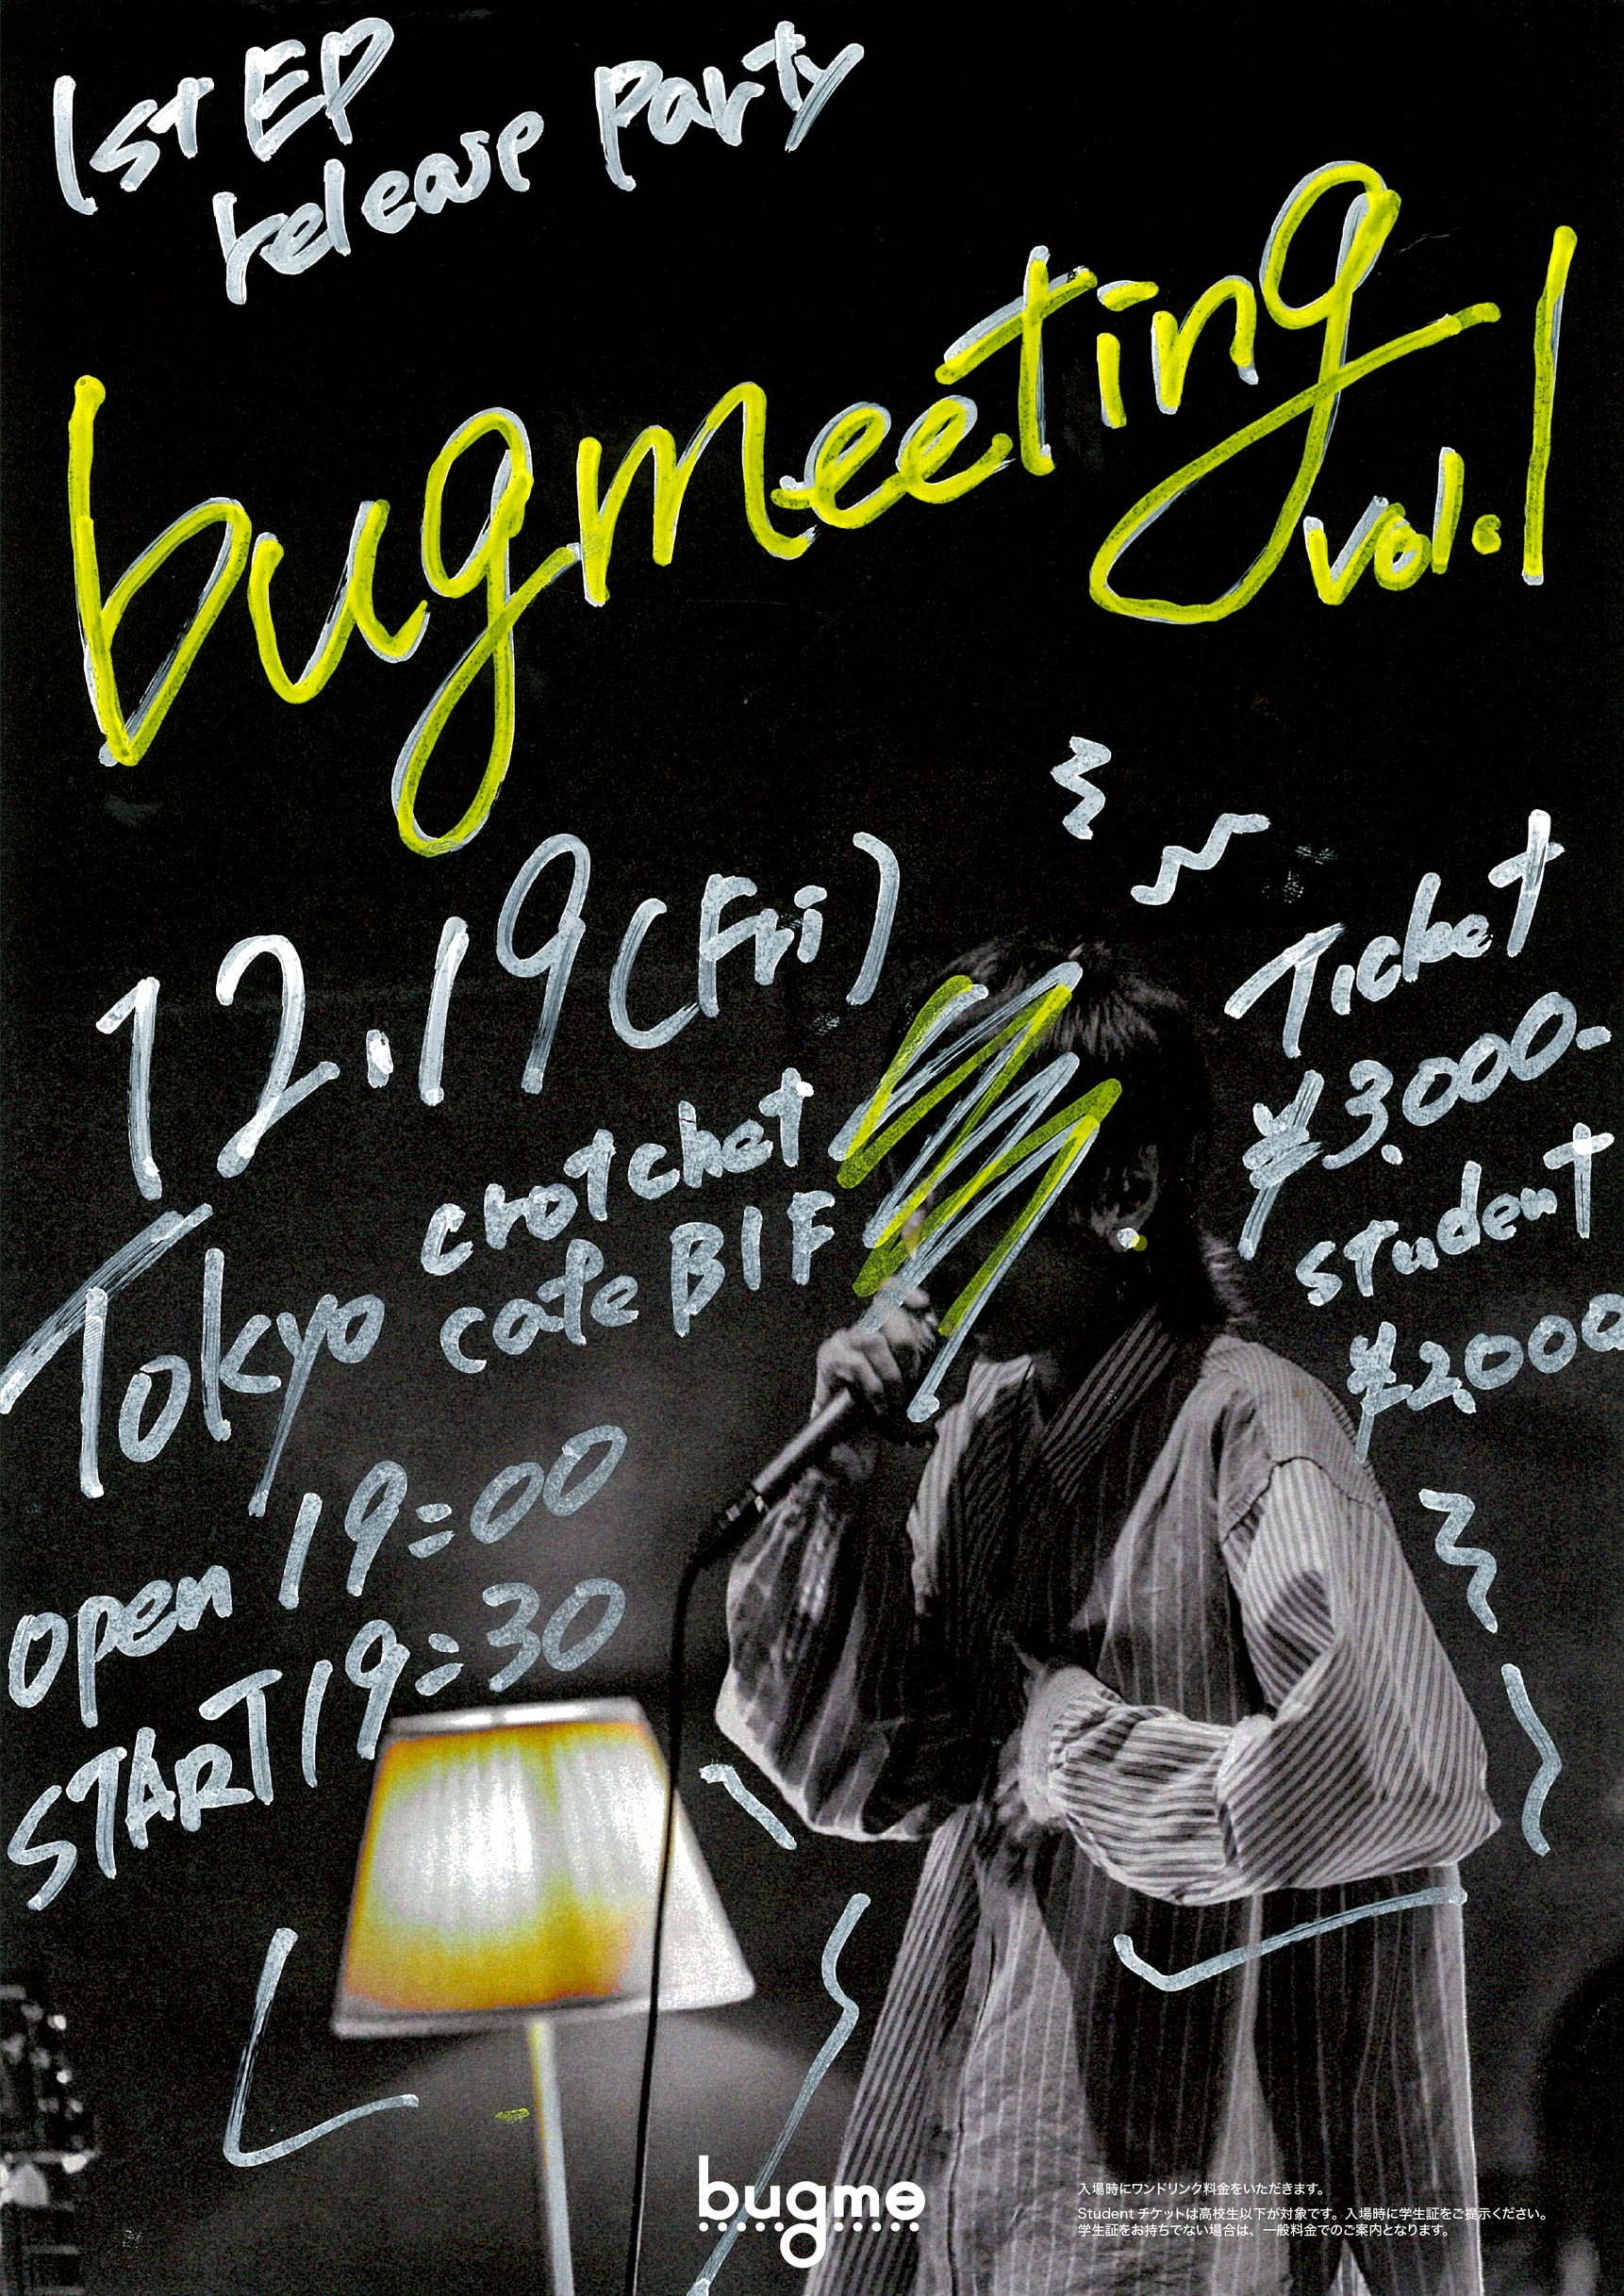 1st EP
release party
bugmeeting
vol.1
12.19(Fri)
Tokyo
crotchet
cafe B1F
open 19:00
START 19:30
Ticket
¥3.000-
student
¥2.000
bugme
入場時にワンドリンク料金をいただきます。
Student チケットは高校生以下が対象です。入場時に学生証をご提示ください。
学生証をお持ちでない場合は、一般料金でのご案内となります。